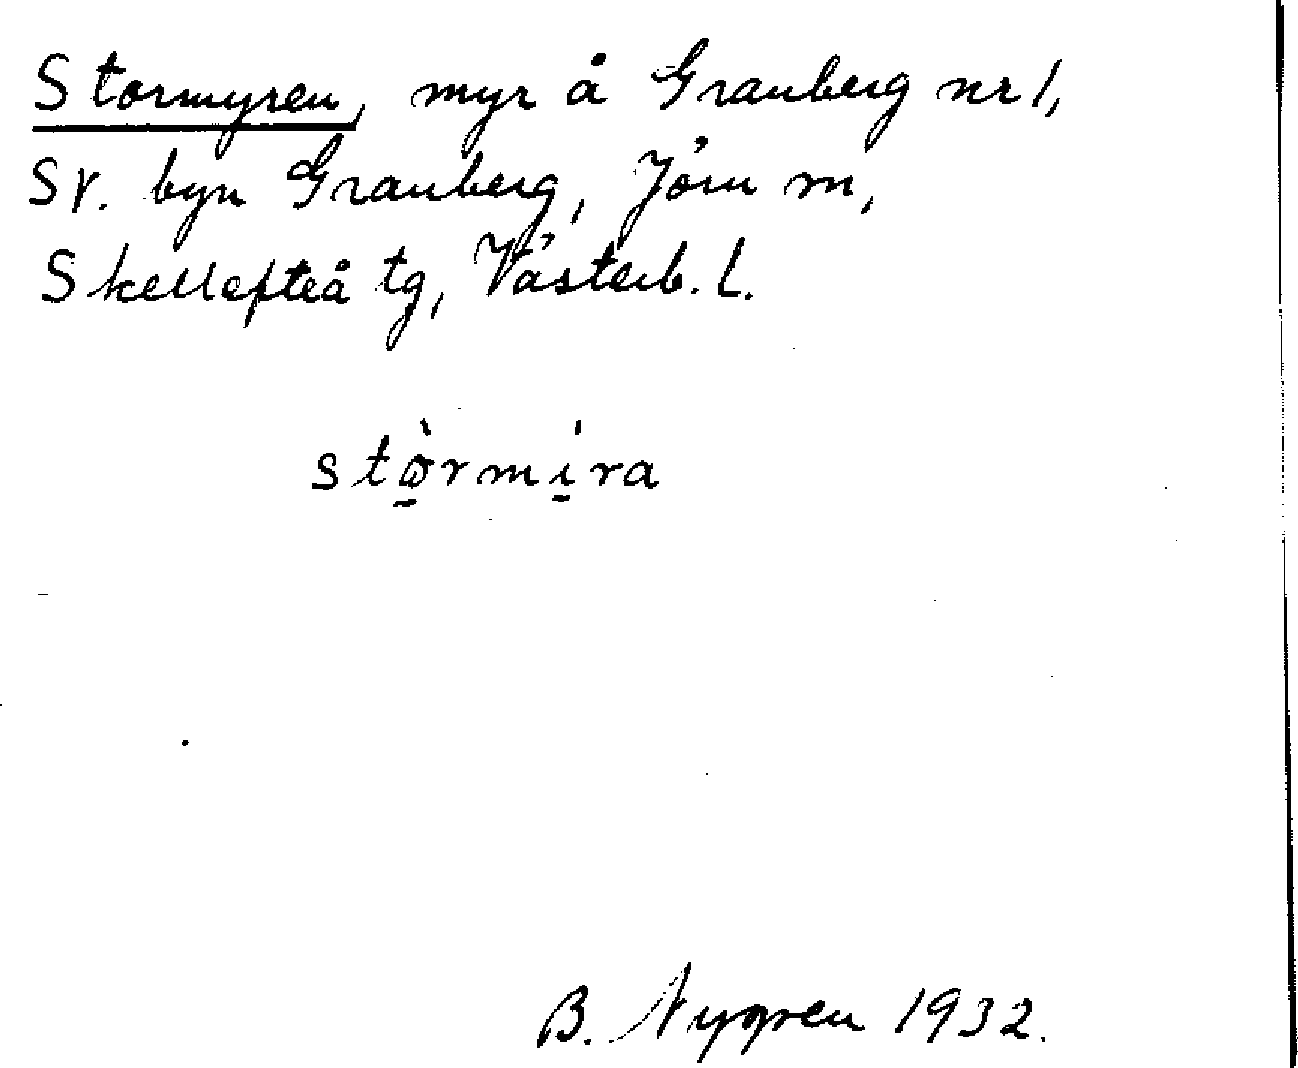 Stormyren, myr å Granberg nr 1,
SV. byn Granberg, Jörn m,
Skellefteå tg, Västerb. l.
stø̱̀rmí̱ra
B. Nygren 1932.